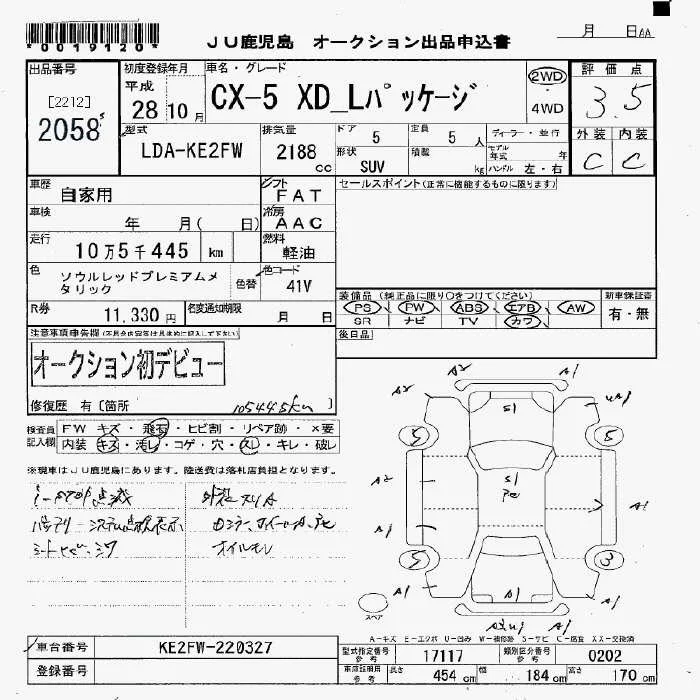 *0019120*
JU鹿児島 オークション出品申込書
月 日AA
出品番号 初度登録年月 車名・グレード 評価点
[2212] 2058
平成 28 10月
CX-5 XD_Lパッケージ
2WD ・ 4WD
3.5
型式 LDA-KE2FW
排気量 2188 cc
ドア 5 定員 5人 ディーラー・並行
形状 SUV 積載 kg
モデル年式 年
ハンドル 左・右
外装 内装
C C
車歴 自家用
シフト FAT
セールスポイント(正常に機能するものに限ります)
車検 年 月( 日)
冷房 AAC
走行 10万5千445 km
燃料 軽油
色 ソウルレッドプレミアムメタリック
色替
色コード 41V
装備品(純正品に限り○をつけてください) 新車保証書
PS PW ABS エアB AW
SR ナビ TV カワ
有・無
R券 11,330円
名変通知期限 月 日
後日品
注意事項申告欄
オークション初デビュー
修復歴 有〔箇所 105445km 〕
検査員記入欄
FW キズ・飛石・ヒビ割・リペア跡・×要
内装 キズ・汚レ・コゲ・穴・スレ・キレ・破レ
※現車はJU鹿児島にあります。陸送費は落札店負担となります。
i-STOP点滅
外装スリA
オイルモレ
A2 A1 A1
A2 S1
5 5
A2 S1 A1
A1
5 3
A1 A1 A1
スペア
A-キズ E-エクボ U-凹み W-補修跡 S-サビ C-腐食 XX-交換済
車台番号 KE2FW-220327
型式指定番号 参考 17117 類別区分番号 参考 0202
登録番号
車庫証明用 参考 長さ 454 cm 幅 184 cm 高さ 170 cm